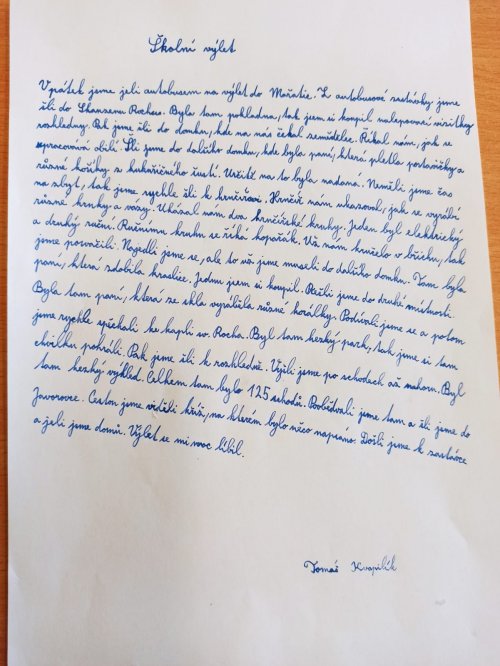 Školní výlet
V pátek jsme jeli autobusem na výlet do Mařatic. Z autobusové zastávky jsme
šli do Skanzenu Rochus. Byla tam pokladna, tak jsem si koupil nalepovací vizitky
rozhledny. Pak jsme šli do domku, kde na nás čekal zemědělec. Říkal nám, jak se
zpracovává obilí. Šli jsme do dalšího domku, kde byla paní, která pletla postavičky a
různé košíky z kukuřičného šustí. Určitě na to byla nadaná. Neměli jsme čas
na zbyt, tak jsme rychle šli k hrnčířovi. Hrnčíř nám ukazoval, jak se vyrábí
různé hrnky a vázy. Ukázal nám dva hrnčířské kruhy. Jeden byl elektrický
a druhý ruční. Ručnímu kruhu se říká kopařák. Už nám kručelo v břichu, tak
jsme posvačili. Najedli jsme se, ale to už jsme museli do dalšího domku. Tam byla
paní, která zdobila kraslice. Jednu jsem si koupil. Přešli jsme do druhé místnosti.
Byla tam paní, která ze skla vyráběla různé korálky. Podívali jsme se a potom
jsme rychle spěchali ke kapli sv. Rocha. Byl tam hezký park, tak jsme si tam
chvilku pohráli. Pak jsme šli k rozhledně. Vyšli jsme po schodech až nahoru. Byl
tam hezký výhled. Celkem tam bylo 125 schodů. Poobědvali jsme tam a šli jsme do
Javorovce. Cestou jsme viděli kříž, na kterém bylo něco napsáno. Došli jsme k zastávce
a jeli jsme domů. Výlet se mi moc líbil.
Tomáš Kvapilík